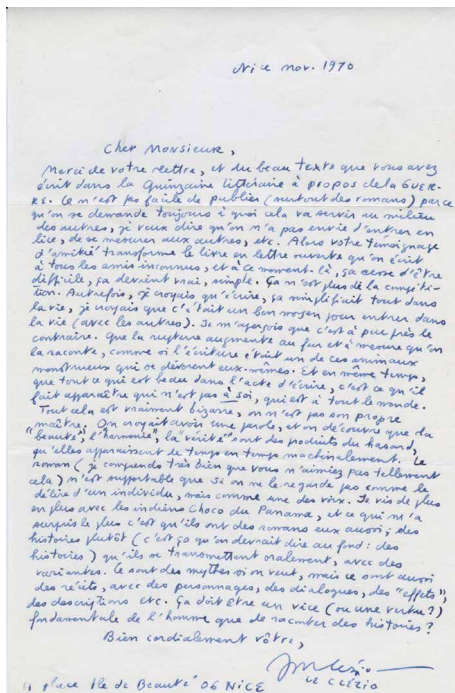 Nice nov. 1970
Cher Monsieur,
Merci de votre lettre, et du beau texte que vous avez
écrit dans la Quinzaine littéraire à propos de la GUER-
RE. Ce n'est pas facile de publier (surtout des romans) parce
qu'on se demande toujours à quoi cela va servir au milieu
des autres, je veux dire qu'on n'a pas envie d'entrer en
lice, de se mesurer aux autres, etc. Alors votre témoignage
d'amitié transforme le livre en lettre ouverte qu'on écrit
à tous les amis inconnus, et à ce moment-là, ça cesse d'être
difficile, ça devient vrai, simple. Ça n'est plus de la compéti-
tion. Autrefois, je croyais qu'écrire, ça simplifiait tout dans
la vie, je croyais que c'était un bon moyen pour entrer dans
la vie (avec les autres). Je m'aperçois que c'est à peu près le
contraire. Que la rupture augmente au fur et à mesure qu'on
la raconte, comme si l'écriture était un de ces animaux
monstrueux qui se dévorent eux-mêmes. Et en même temps,
que tout ce qui est beau dans l'acte d'écrire, c'est ce qu'il
fait apparaître qui n'est pas à soi, qui est à tout le monde.
Tout cela est vraiment bizarre, on n'est pas son propre
maître. On croyait avoir une parole, et on découvre que la
"beauté", l'"harmonie", la "vérité" sont des produits du hasard,
qu'elles apparaissent de temps en temps machinalement. Le
roman (je comprends très bien que vous n'aimiez pas tellement
cela) n'est supportable que si on ne le regarde pas comme le
délire d'un individu, mais comme une des voix. Je vis de plus
en plus avec les indiens Choco du Panama, et ce qui m'a
surpris le plus c'est qu'ils ont des romans eux aussi; des
histoires plutôt (c'est ça qu'on devrait dire au fond: des
histoires) qu'ils se transmettent oralement, avec des
variantes. Ce sont des mythes si on veut, mais ce sont aussi
des récits, avec des personnages, des dialogues, des "effets",
des descriptions etc. Ça doit être un vice (ou une vertu?)
fondamentale de l'homme que de raconter des histoires?
Bien cordialement vôtre,
JM Le Clézio
LE CLÉZIO
place Ile de Beauté 06 NICE